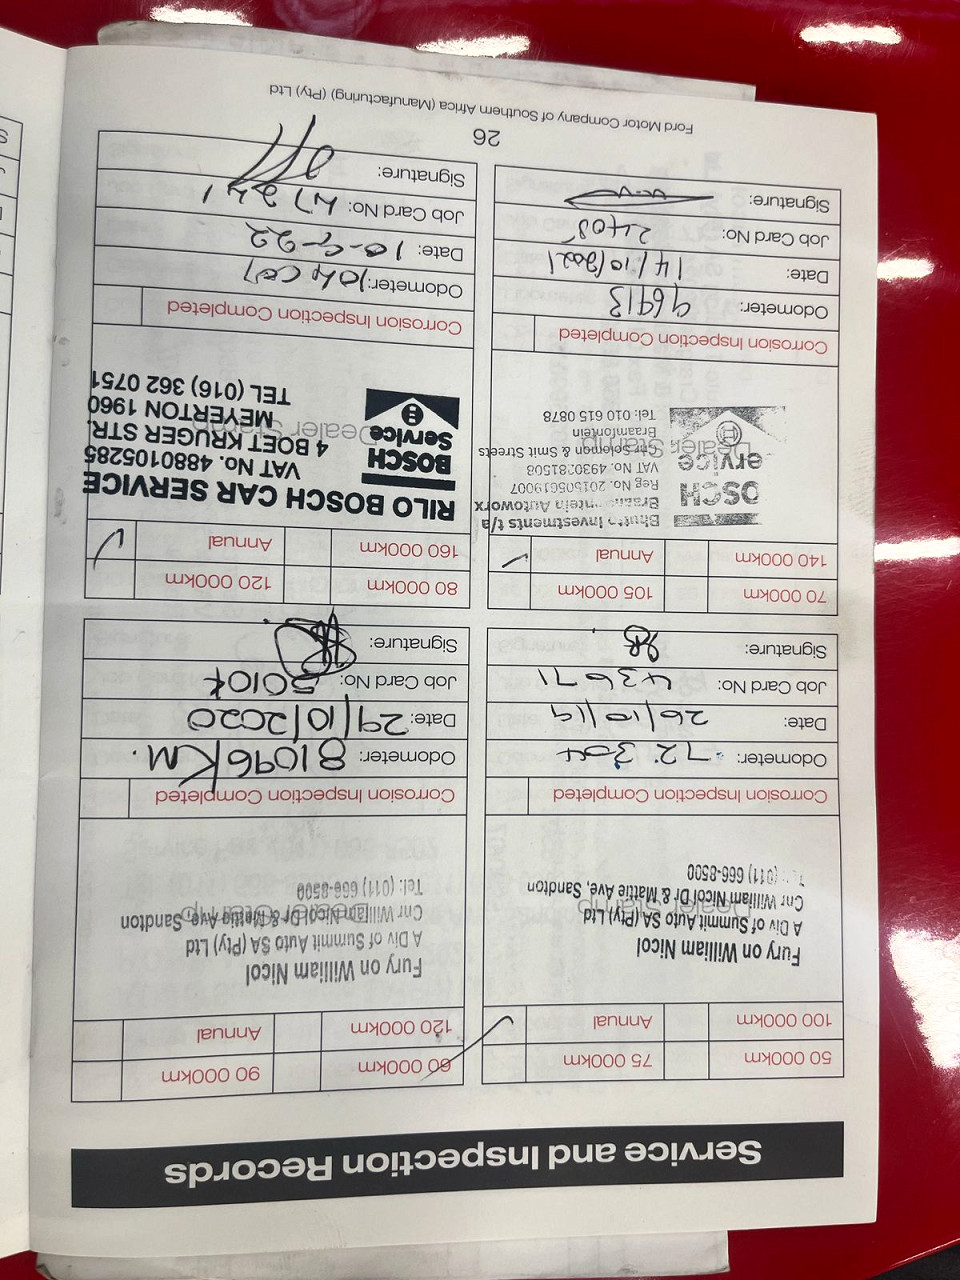 Service and Inspection Records
50 000km 75 000km
100 000km Annual ✓
Dealer Stamp
Fury on William Nicol
A Div of Summit Auto SA (Pty) Ltd
Cnr William Nicol Dr & Mattie Ave, Sandton
Tel: (011) 666-8500
Corrosion Inspection Completed
Odometer: 72 304
Date: 26/10/19
Job Card No: 43671
Signature:
60 000km 90 000km
120 000km Annual
Dealer Stamp
Fury on William Nicol
A Div of Summit Auto SA (Pty) Ltd
Cnr William Nicol Dr & Mattie Ave, Sandton
Tel: (011) 666-8500
Corrosion Inspection Completed
Odometer: 81096KM.
Date: 29/10/2020
Job Card No:
Signature:
70 000km 105 000km
140 000km Annual ✓
Investments t/a
Autoworx
Reg No. 201505619007
VAT No.
Cnr Solomon & Smit Streets
Braamfontein
Tel: 010 615 0878
BOSCH
Service
Dealer Stamp
Corrosion Inspection Completed
Odometer: 96413
Date: 14/10/2021
Job Card No: 2408
Signature:
80 000km 120 000km
160 000km Annual ✓
RILO BOSCH CAR SERVICE
VAT No. 4880105285
4 BOET KRUGER STR.
MEYERTON 1960
TEL (016) 362 0751
BOSCH
Service
Dealer Stamp
Corrosion Inspection Completed
Odometer:
Date: 10-9-22
Job Card No:
Signature:
26
Ford Motor Company of Southern Africa (Manufacturing) (Pty) Ltd